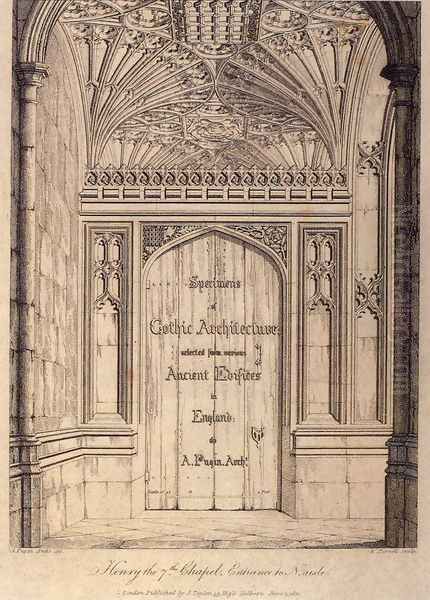 Specimens
of
Gothic Architecture
selected from various
Ancient Edifices
in
England:
A. Pugin. Archt.
Henry the 7th Chapel, Entrance to N. aisle.
London Published by J. Taylor 59 High Holborn